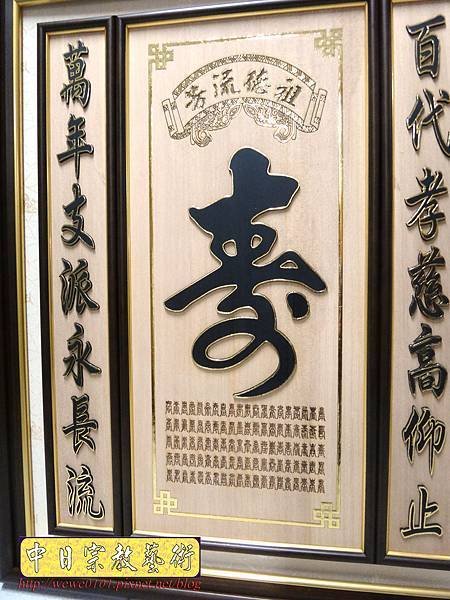 祖德流芳
壽
百代孝慈高仰止
萬年支派永長流
中日宗教藝術
http://wewe0101.pixnet.net/blog